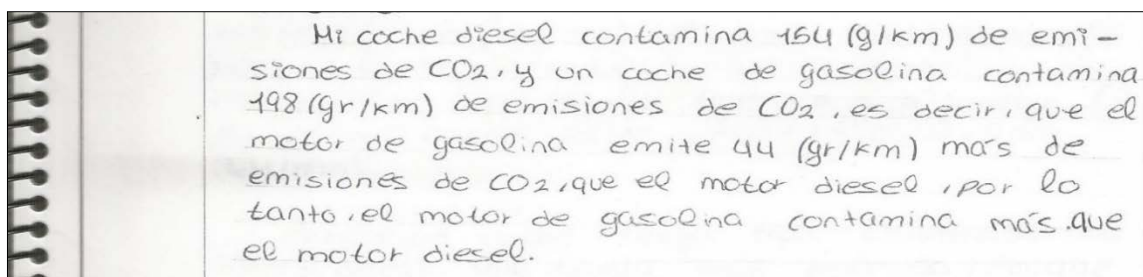 Mi coche diesel contamina 154 (g/km) de emi-
siones de CO2, y un coche de gasolina contamina
198 (gr/km) de emisiones de CO2, es decir, que el
motor de gasolina emite 44 (gr/km) más de
emisiones de CO2, que el motor diesel, por lo
tanto, el motor de gasolina contamina más que
el motor diesel.